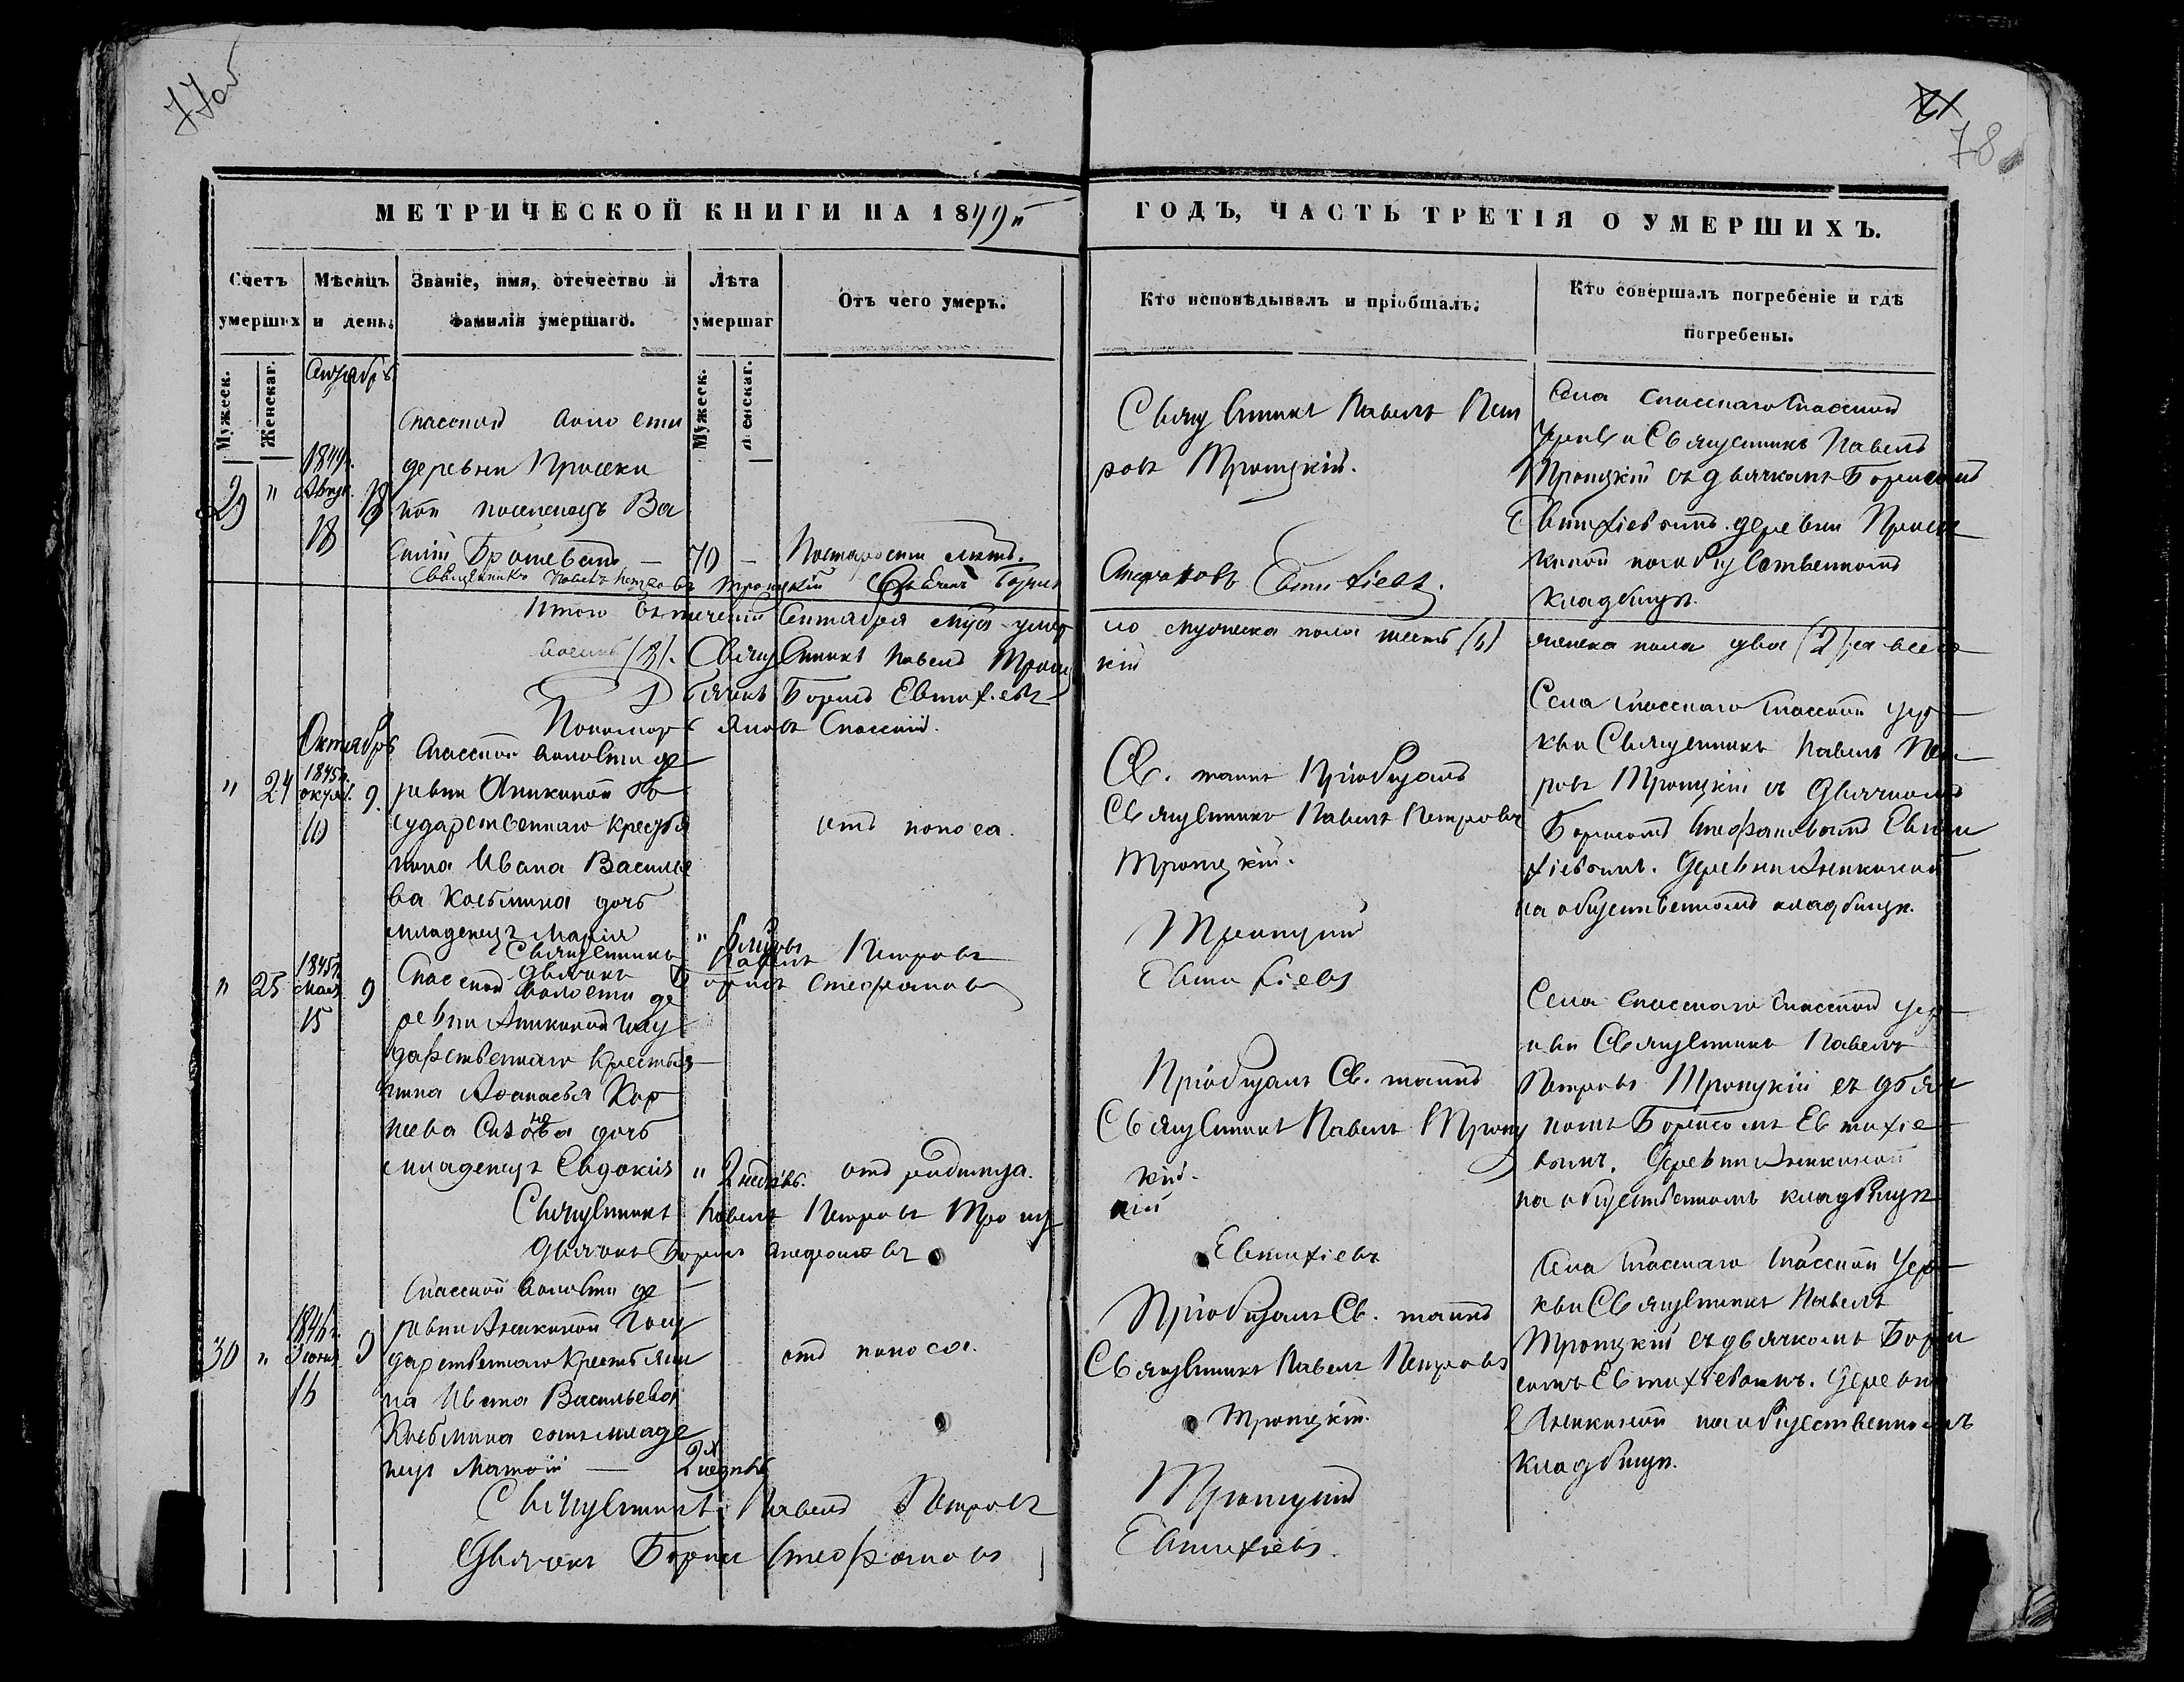 77об
71
78
МЕТРИЧЕСКОЙ КНИГИ НА 1849й
ГОДЪ, ЧАСТЬ ТРЕТІЯ О УМЕРШИХЪ.
Счетъ умершихъ
Мѣсяцъ и день.
Званіе, имя, отечество и фамилія умершаго.
Лѣта умершаг
Отъ чего умеръ.
Кто исповѣдывалъ и пріобщалъ.
Кто совершалъ погребеніе и гдѣ погребены.
Мужеск.
Женскаг.
Мужеск.
Женскаг.
Спасской волости
деревни Просеки
ной поселенецъ Ва
силій
29 "
18
70
Постарости лѣтъ.
Священникъ Павелъ Петровъ Троицкій
Борисъ
Священникъ Павелъ Пет
ровъ Троицкій.
Евтихіевъ.
Села Спасскаго Спасской
Церкви Священникъ Павелъ
Троицкій съ дьячкомъ Борисомъ
Евтихіевымъ. деревни Просе
киной на общественномъ
кладбищѣ.
Итого въ теченіи Сентября
мужеска пола шесть (6)
женска пола два (2), а всего
восемь (8). Священникъ Павелъ Троиц
кій
Дьячекъ Борисъ Евтихіевъ
Пономарь Яковъ Спасскій.
Октябрь
" 24
10
9.
Спасской волости де
ревни Аникиной Го
сударственнаго крестья
нина Ивана Василье
ва Косьмина дочь
младенецъ Марія
отъ поноса.
Св. таинъ Пріобщалъ
Священникъ Павелъ Петровъ
Троицкій.
Села Спасскаго Спасской Цер
кви Священникъ Павелъ Пет
ровъ Троицкій съ Дьячкомъ
Борисомъ Стефановымъ Евти
хіевымъ. Деревни Аникиной
на общественномъ кладбищѣ.
Священникъ Павелъ Петровъ
Троицкій
Дьячекъ Борисъ Стефановъ
Евтихіевъ
" 25
15
9
Спасской волости де
ревни Аникиной Госу
дарственнаго Крестья
нина Аѳанасья Кор
нева дочь
младенецъ Евдокія
" 2 недѣль.
отъ родимца.
Пріобщалъ Св. таинъ
Священникъ Павелъ Троиц
кій.
Села Спасскаго Спасской Цер
кви Священникъ Павелъ
Петровъ Троицкій съ дьяч
комъ Борисомъ Евтихіе
вымъ. Деревни Аникиной
на общественномъ кладбищѣ
Священникъ Павелъ Петровъ Троиц
кій
Дьячекъ Борисъ Стефановъ
Евтихіевъ
30 "
16
9
Спасской волости де
ревни Аникиной Госу
дарственнаго Крестьяни
на Ивана Васильева
Косьмина сынъ младе
нецъ
2х недѣль
отъ поноса.
Пріобщалъ Св. таинъ
Священникъ Павелъ Петровъ
Троицкій.
Села Спасскаго Спасской Цер
кви Священникъ Павелъ
Троицкій съ дьячкомъ Бори
сомъ Евтихіевымъ. Деревни
Аникиной на общественномъ
кладбищѣ.
Священникъ Павелъ Петровъ
Троицкій
Дьячекъ Борисъ Стефановъ
Евтихіевъ.